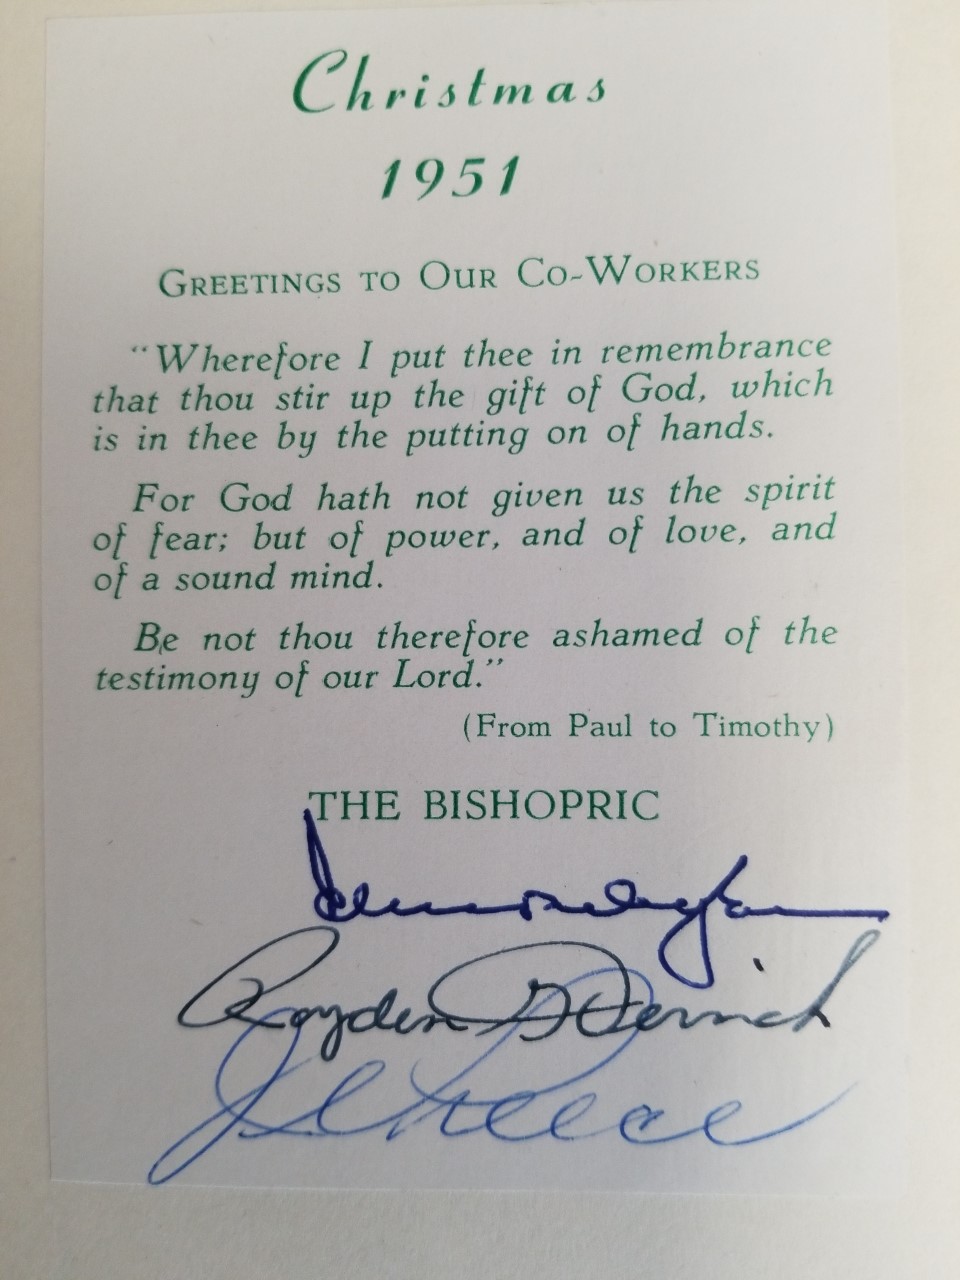 Christmas
1951
GREETINGS TO OUR CO-WORKERS
“Wherefore I put thee in remembrance
that thou stir up the gift of God, which
is in thee by the putting on of hands.
For God hath not given us the spirit
of fear; but of power, and of love, and
of a sound mind.
Be not thou therefore ashamed of the
testimony of our Lord.”
(From Paul to Timothy)
THE BISHOPRIC
Royden G Derrick
Reece